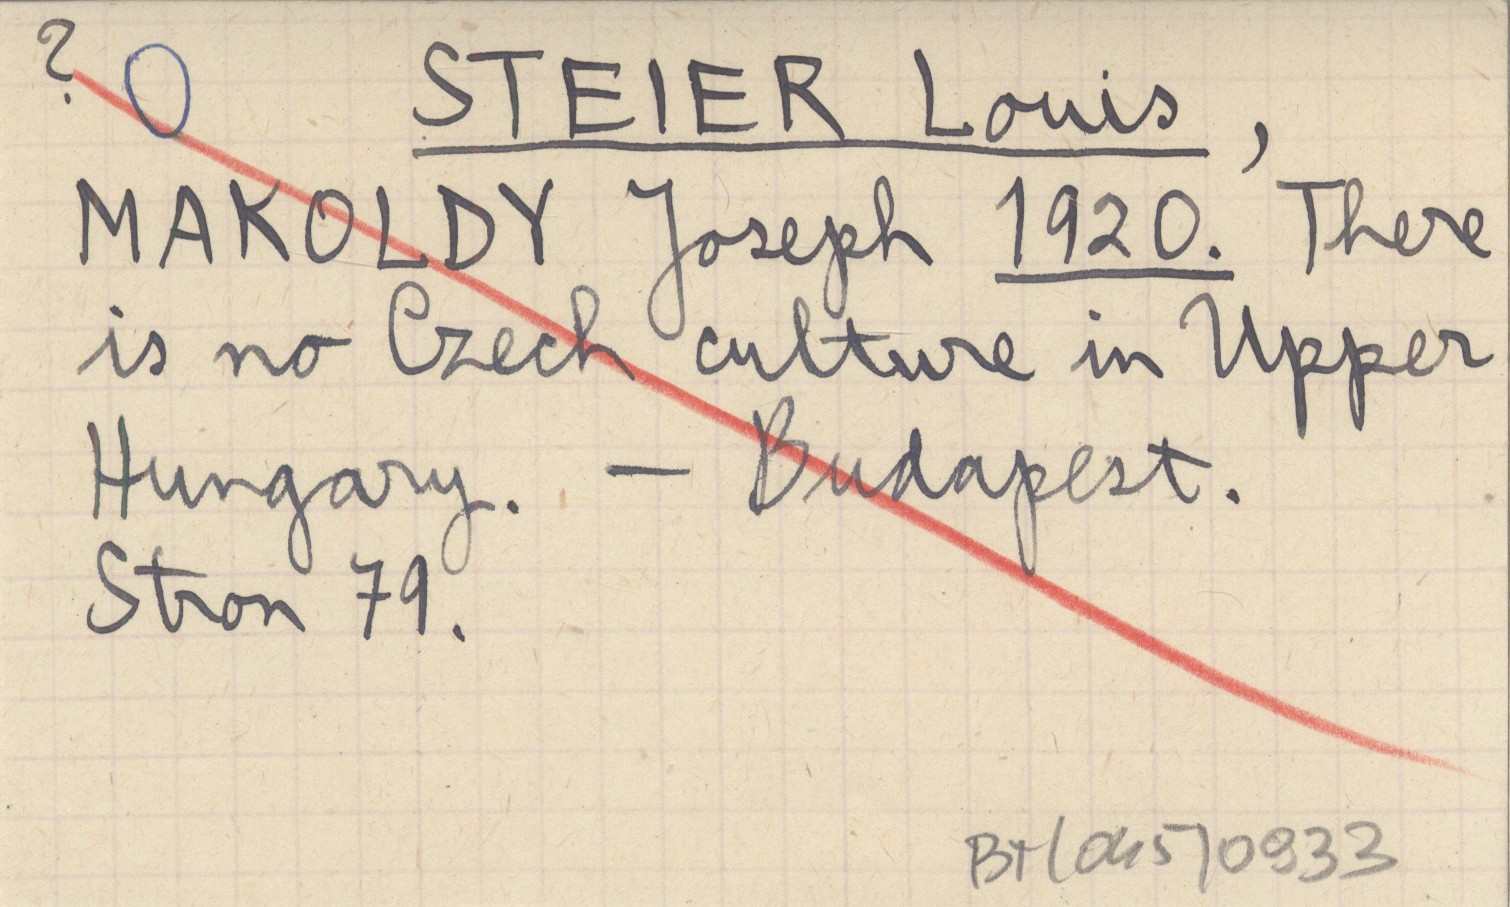 ? O STEIER Louis,
MAKOLDY Joseph 1920. There
is no Czech culture in Upper
Hungary. — Budapest.
Stron 79.
BT(045)0933